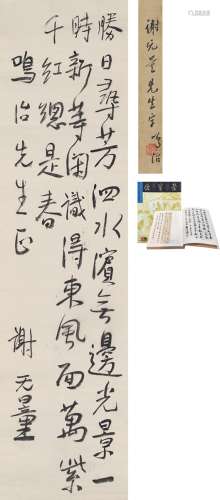 勝日尋芳泗水濱無邊光景一
時新等閑識得東風面萬紫
千紅總是春
鳴治先生正
謝无量
謝无量先生字 鳴治